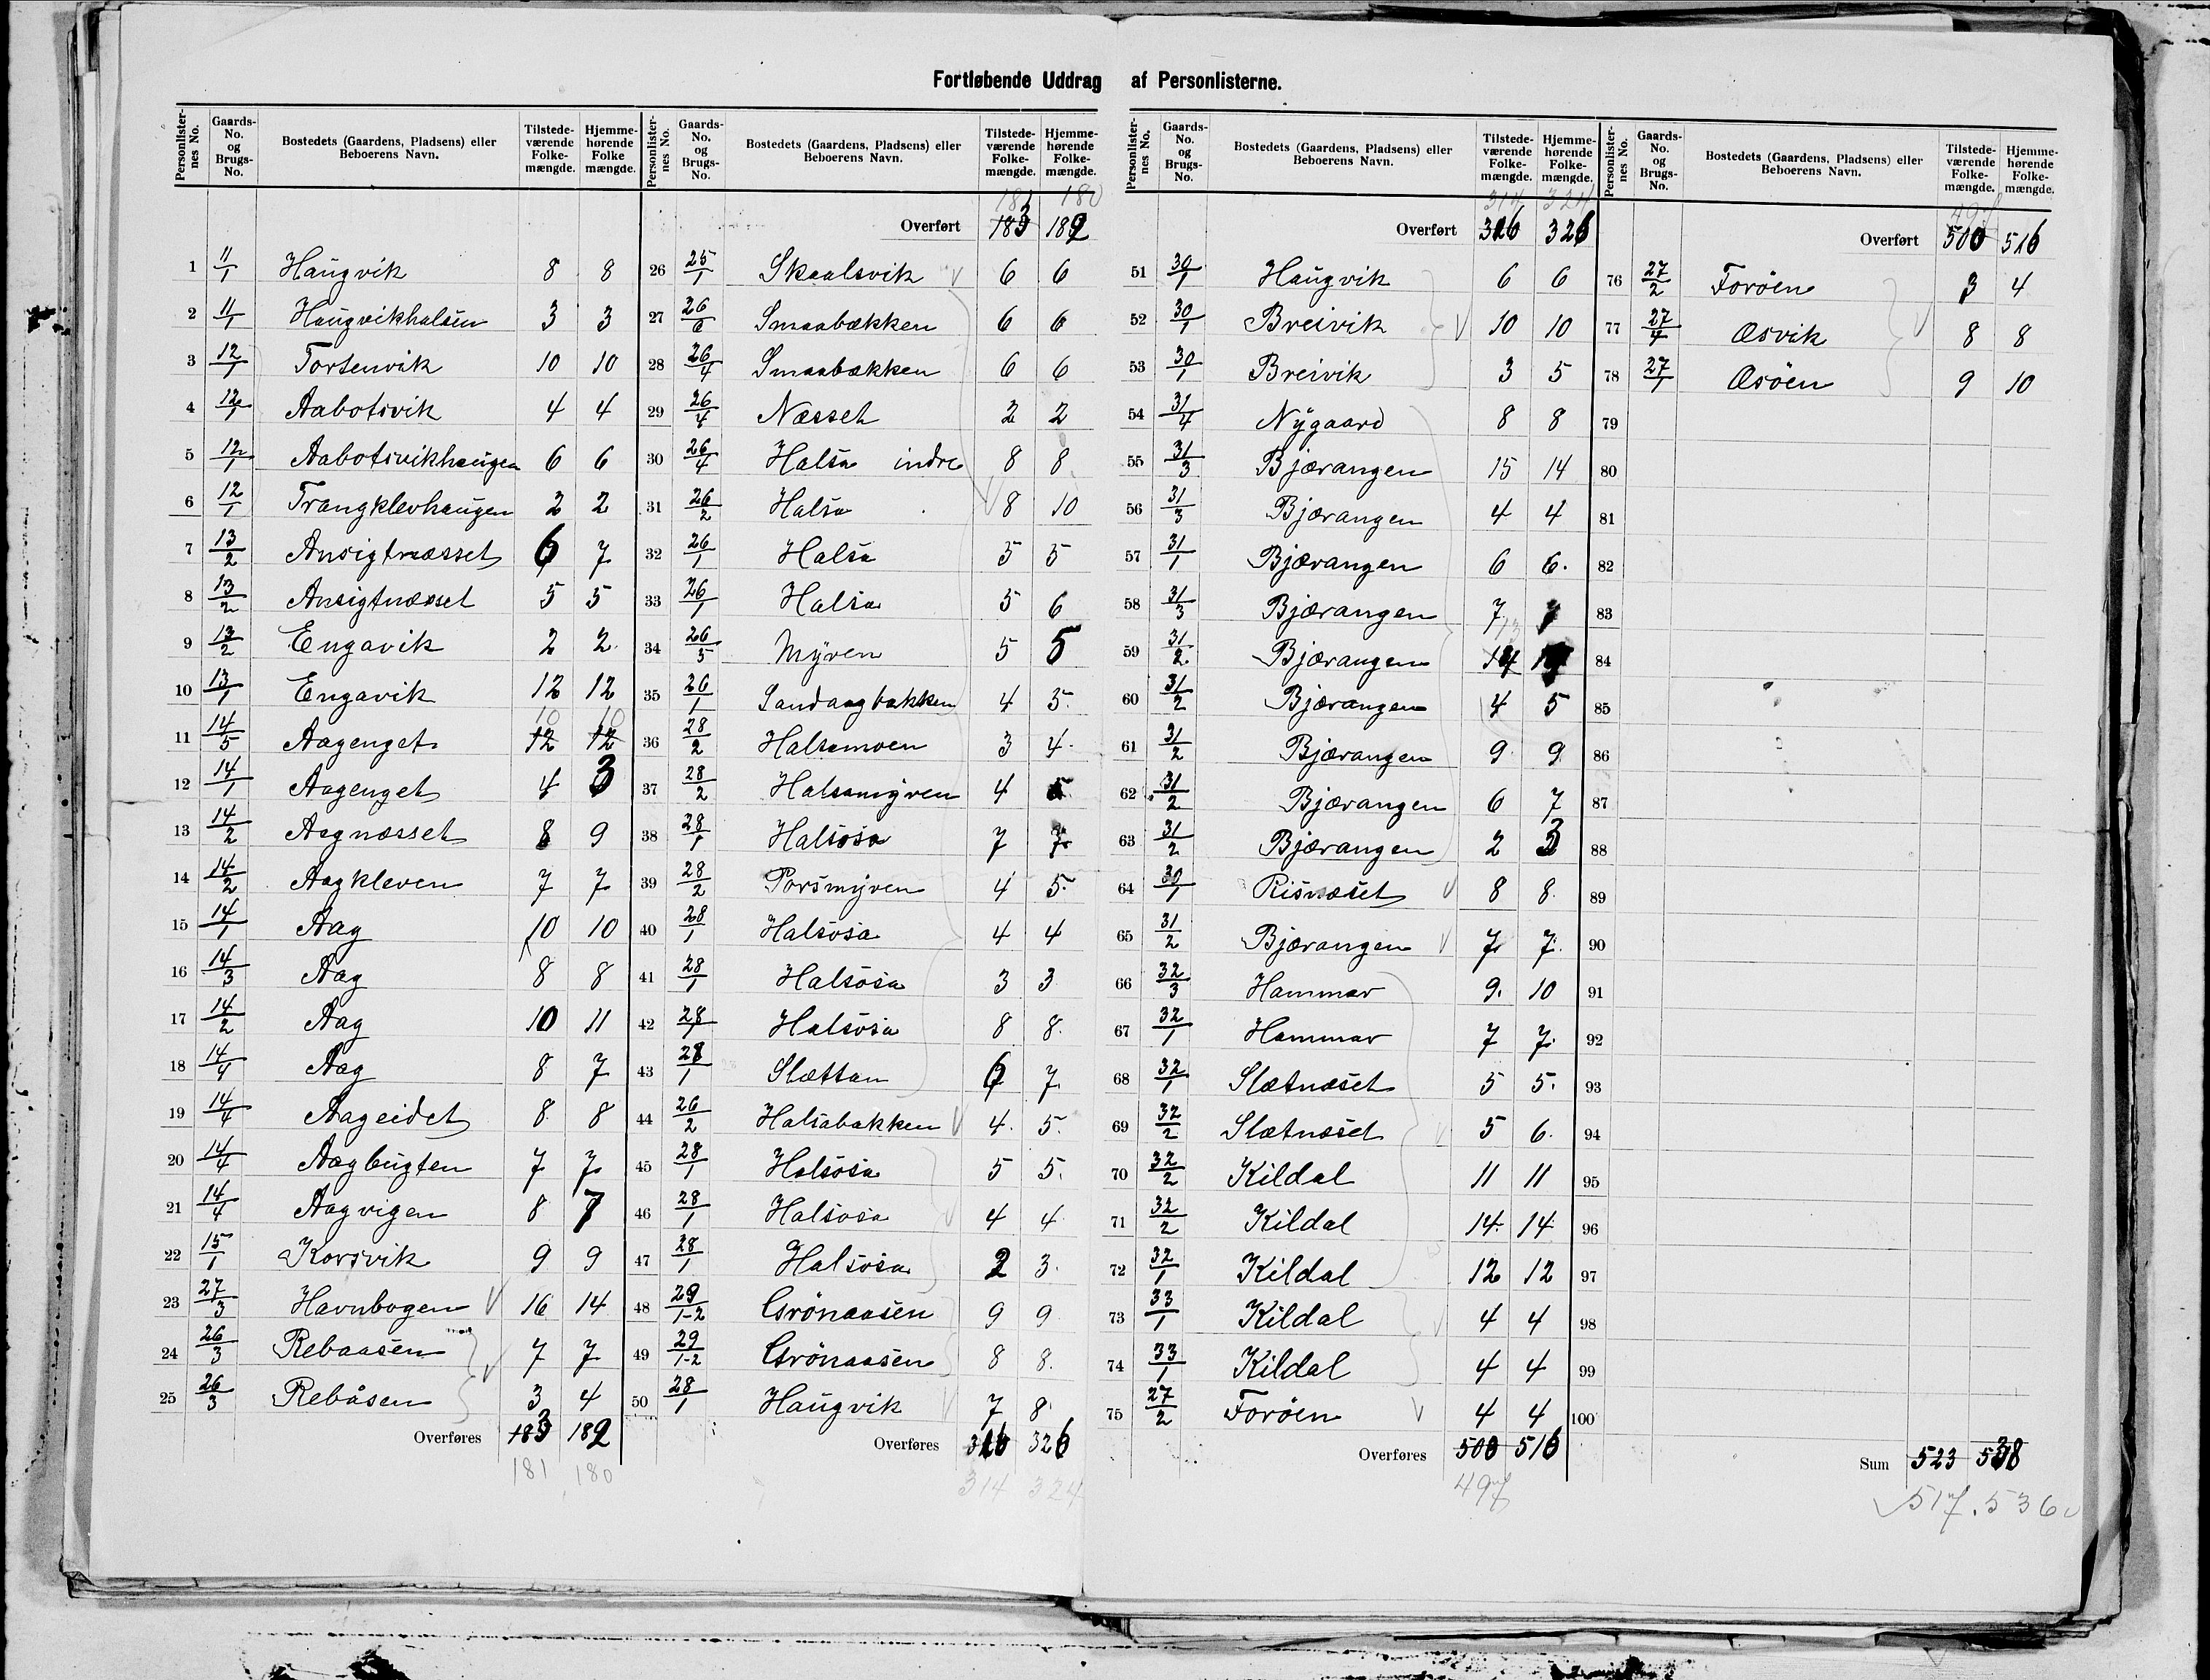 Fortløbende Uddrag af Personlisterne.
Personlister-nes No. | Gaards-No. og Brugs-No. | Bostedets (Gaardens, Pladsens) eller Beboerens Navn. | Tilstede-værende Folke-mængde. | Hjemme-hørende Folke mængde.
1 11/1 Haugvik 8 8
2 11/1 Haugvikhalsen 3 3
3 12/1 Torsenvik 10 10
4 12/1 Aabotsvik 4 4
5 12/1 Aabotsvikhaugen 6 6
6 12/1 Trangklevhaugen 2 2
7 13/2 Ansigtnæsset 6 7
8 13/2 Ansigtnæsset 5 5
9 13/2 Engavik 2 2
10 13/1 Engavik 12 12
10 10
11 14/5 Aagenget 12 12
12 14/1 Aagenget 4 3
13 14/2 Aagnæsset 8 9
14 14/2 Aagkleven 7 7
15 14/1 Aag 10 10
16 14/3 Aag 8 8
17 14/2 Aag 10 11
18 14/4 Aag 8 7
19 14/4 Aageidet 8 8
20 14/4 Aagbugten 7 7
21 14/4 Aagvigen 8 7
22 15/1 Korsvik 9 9
23 27/3 Havnbogen 16 14
24 26/3 Rebaasen 7 7
25 26/3 Rebåsen 3 4
Overføres 183 182
181 180
Personlister-nes No. | Gaards-No. og Brugs-No. | Bostedets (Gaardens, Pladsens) eller Beboerens Navn. | Tilstede-værende Folke-mængde. | Hjemme-hørende Folke-mængde.
181 180
Overført 183 182
26 25/1 Skaalsvik 6 6
27 26/6 Smaabækken 6 6
28 26/4 Smaabækken 6 6
29 26/4 Næsset 2 2
30 26/4 Halsa indre 8 8
31 26/2 Halsa 8 10
32 26/1 Halsa 5 5
33 26/1 Halsa 5 6
34 26/5 Myren 5 5
35 26/1 Sandaagbakken 4 5
36 28/2 Halsamoen 3 4
37 28/2 Halsamyren 4 5
38 28/1 Halsosa 7 7
39 28/2 Porsmyren 4 5
40 28/1 Halsosa 4 4
41 28/1 Halsosa 3 3
42 28/1 Halsosa 8 8
43 28/1 Slættan 6 7
44 26/2 Halsabakken 4 5
45 28/1 Halsosa 5 5
46 28/1 Halsosa 4 4
47 28/1 Halsosa 2 3
48 29/1-2 Grönaasen 9 9
49 29/1-2 Grönaasen 8 8
50 28/1 Haugvik 7 8
Overføres 316 326
314 324
Personlister-nes No. | Gaards-No. og Brugs-No. | Bostedets (Gaardens, Pladsens) eller Beboerens Navn. | Tilstede-værende Folke-mængde. | Hjemme-hørende Folke-mængde.
314 324
Overført 316 326
51 30/1 Haugvik 6 6
52 30/1 Breivik 10 10
53 30/1 Breivik 3 5
54 31/4 Nygaard 8 8
55 31/3 Bjærangen 15 14
56 31/3 Bjærangen 4 4
57 31/1 Bjærangen 6 6
58 31/3 Bjærangen 7 7
13
59 31/2 Bjærangen 14
60 31/2 Bjærangen 4 5
61 31/2 Bjærangen 9 9
62 31/2 Bjærangen 6 7
63 31/2 Bjærangen 2 3
64 30/1 Risnæset 8 8
65 31/2 Bjærangen 7 7
66 32/3 Hammar 9 10
67 32/1 Hammar 7 7
68 32/1 Slætnæset 5 5
69 32/2 Slætnæset 5 6
70 32/2 Kildal 11 11
71 32/2 Kildal 14 14
72 32/1 Kildal 12 12
73 33/1 Kildal 4 4
74 33/1 Kildal 4 4
75 27/2 Forøen 4 4
Overføres 500 516
497
Personlister-nes No. | Gaards-No. og Brugs-No. | Bostedets (Gaardens, Pladsens) eller Beboerens Navn. | Tilstede-værende Folke-mængde. | Hjemme-hørende Folke-mængde.
497
Overført 500 516
76 27/2 Forøen 3 4
77 27/4 Æsvik 8 8
78 27/1 Æsöen 9 10
79
80
81
82
83
84
85
86
87
88
89
90
91
92
93
94
95
96
97
98
99
100
Sum 523 538
517. 536